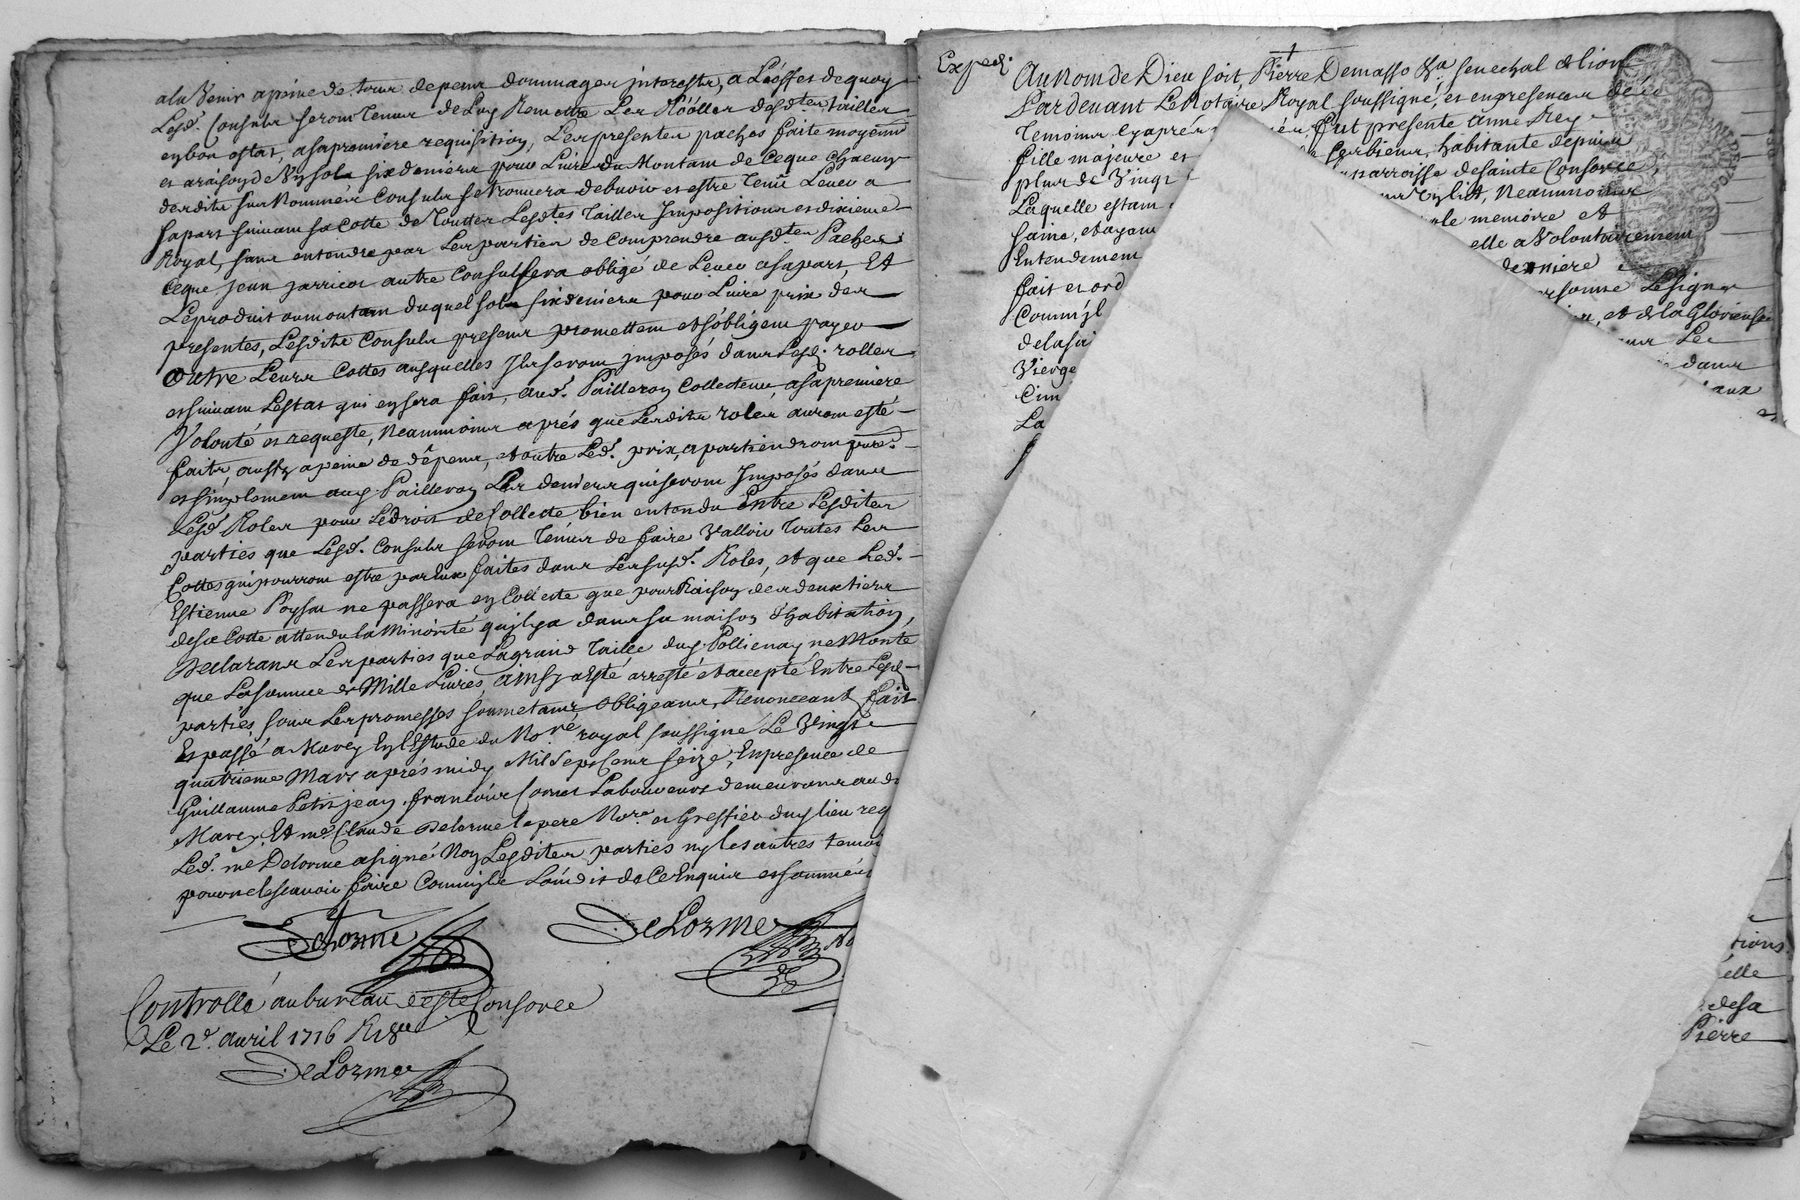 alu Venir apeine de tous depens dommages interests, a Leoffes dequoy
Lesd. Consuls seront Tenus de Luy Remettre Les Rôolles desdtes tailles
en bon estat, asapremiere requisition, Les presentes paches faite moyenn
et araison de six deniers pour Livre du Montam de ceque chacun
desdits sus Nommés Consuls se trouvera debuvoir et estre Tenu Lever a
sapart suivam sa Cotte de Touttes Lesdtes tailles Impositions et dixieme
Royal, sans entendre par Les parties de comprendre ausdtes Paches
ceque jean jarricot autre Consul sera obligé de Lever asapart, Et
Leproduit aumontam duquel sol six deniers pour Livre prix des
presentes, Lesdits Consuls presens promettem et s'obligem payer
outre Leurs Cottes ausquelles Ils seront jmposés dans Lesd. rolles
et suivam Lestat qui en sera fait, aud. Pailleron Collecteur asapremiere
Volonté et requeste, Neanmoins aprés que Lesdits roles auront esté
faits, aussy apeine de dépens, et outre Led. prix, apartiendrom pure.
et simplemem aud Pailleron Les deniers quiseront Imposés dans
Lesd. Roles pour Ledroit deCollecte bien entendu Entre Lesdites
parties que Lesd. Consuls seront Tenus de faire Valloir Toutes Les
Cottes quipourrom estre parEux faites dans Lessusd. Roles, et que Led.
Estienne Poysat ne passera en Collecte que pourRaison des deux tiers
desa Cotte attendu la Minorité quilya dans sa maison d'habitation,
Declarans Les parties que Lagrand Taille dud Pollienay ne Monte
que Lasomme de Mille Livres, ainsy a Esté arresté et accepté Entre Lesd.
parties, sous Les promesses soumetans obligeans, Renonceant fait
Et passé a Marcy En l'Estude du Noré royal soussigné Le Vingt
quatrieme Mars aprés midy Mil Sept Cens seize, En presence de
Guillaume Petitjean, francois Cornet Laboureurs demeurans aud
Marcy, Et me. Claude Delorme le pere Nore. et Greffier dud lieu req
Led. me Delorme asigné Non Lesdites parties ny les autres temoi
pour ne le scavoir faire Commeils L'ond it de ce Enquis et sommés
Delorme
DeLorme
Controllé aubureau de ste Consorce
Le 2e. avril 1716
DeLorme
Exped.
Au Nom de Dieu soit, Pierre Demasso &a senechal de lion
Pardevant Le Notaire Royal soussigné, et enpresence des
Temoins Cyaprés fut presente anne Rey
fille majeure et habitante depuis
plus de Vingt parroisse desainte Consorce,
Laquelle estam Neanmoins
saine, et ayam memoire et
Entendemem elle a Volontairemem
fait et ord derniere
Comm'jl personne Lesigne
delasai et de la Glorieuse
Vierge Les
Cim dans
La aux
tions
elle
desa
Pierre